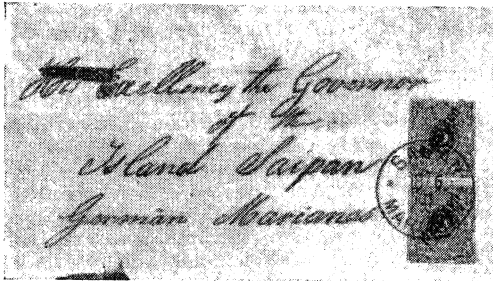 His Excellency the Governor
of the
Island Saipan
German Marianas